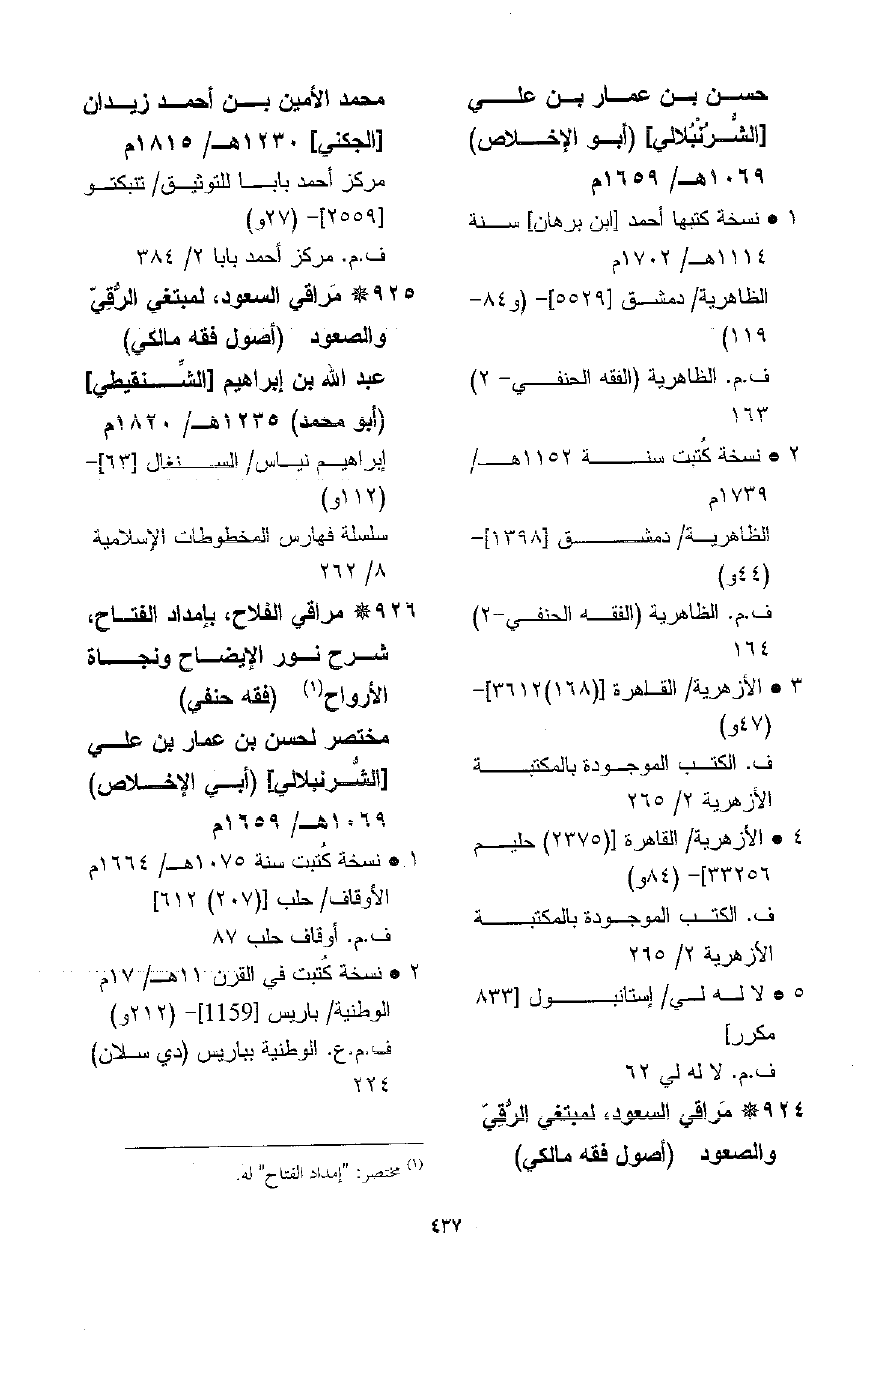 حسن بن عمار بن علي
[الشُّرُنْبُلالي] (أبو الإخلاص)
١٠٦٩هـ/ ١٦٥٩م
١ • نسخة كتبها أحمد [ابن برهان] سنة
١١١٤هـ/ ١٧٠٢م
الظاهرية/ دمشق [٥٥٢٩]- (و٨٤-
١١٩)
ف.م. الظاهرية (الفقه الحنفي- ٢)
١٦٣
٢ • نسخة كُتبت سنة ١١٥٢هـ/
١٧٣٩م
الظاهرية/ دمشق [١٣٩٨]-
(٤٤و)
ف.م. الظاهرية (الفقه الحنفي-٢)
١٦٤
٣ • الأزهرية/ القاهرة [(١٦٨)٣٦١٢]-
(٤٧و)
ف. الكتب الموجودة بالمكتبة
الأزهرية ٢/ ٢٦٥
٤ • الأزهرية/ القاهرة [(٢٣٧٥) حليم
٣٣٢٥٦]- (٨٤و)
ف. الكتب الموجودة بالمكتبة
الأزهرية ٢/ ٢٦٥
٥ • لا له لي/ إستانبول [٨٣٣
مكرر]
ف.م. لا له لي ٦٢
٩٢٤* مَراقي السعود، لمبتغي الرُّقِيّ
والصعود (أصول فقه مالكي)
محمد الأمين بن أحمد زيدان
[الجكني] ١٢٣٠هـ/ ١٨١٥م
مركز أحمد بابا للتوثيق/ تنبكتو
[٢٥٥٩]- (٢٧و)
ف.م. مركز أحمد بابا ٢/ ٣٨٤
٩٢٥* مَراقي السعود، لمبتغي الرُّقِيّ
والصعود (أصول فقه مالكي)
عبد الله بن إبراهيم [الشِّنقيطي]
(أبو محمد) ١٢٣٥هـ/ ١٨٢٠م
إبراهيم نياس/ السنغال [٦٣]-
(١١٢و)
سلسلة فهارس المخطوطات الإسلامية
٨/ ٢٦٢
٩٢٦* مراقي الفلاح، بإمداد الفتاح،
شرح نور الإيضاح ونجاة
الأرواح(١) (فقه حنفي)
مختصر لحسن بن عمار بن علي
[الشُّرنبلالي] (أبي الإخلاص)
١٠٦٩هـ/ ١٦٥٩م
١ • نسخة كُتبت سنة ١٠٧٥هـ/ ١٦٦٤م
الأوقاف/ حلب [(٢٠٧) ٦١٢]
ف.م. أوقاف حلب ٨٧
٢ • نسخة كُتبت في القرن ١١هـ/ ١٧م
الوطنية/ باريس [1159]- (٢١٢و)
ف.م.ع. الوطنية بباريس (دي سلان)
٢٢٤
(١) مختصر: "إمداد الفتاح" له.
٤٣٧